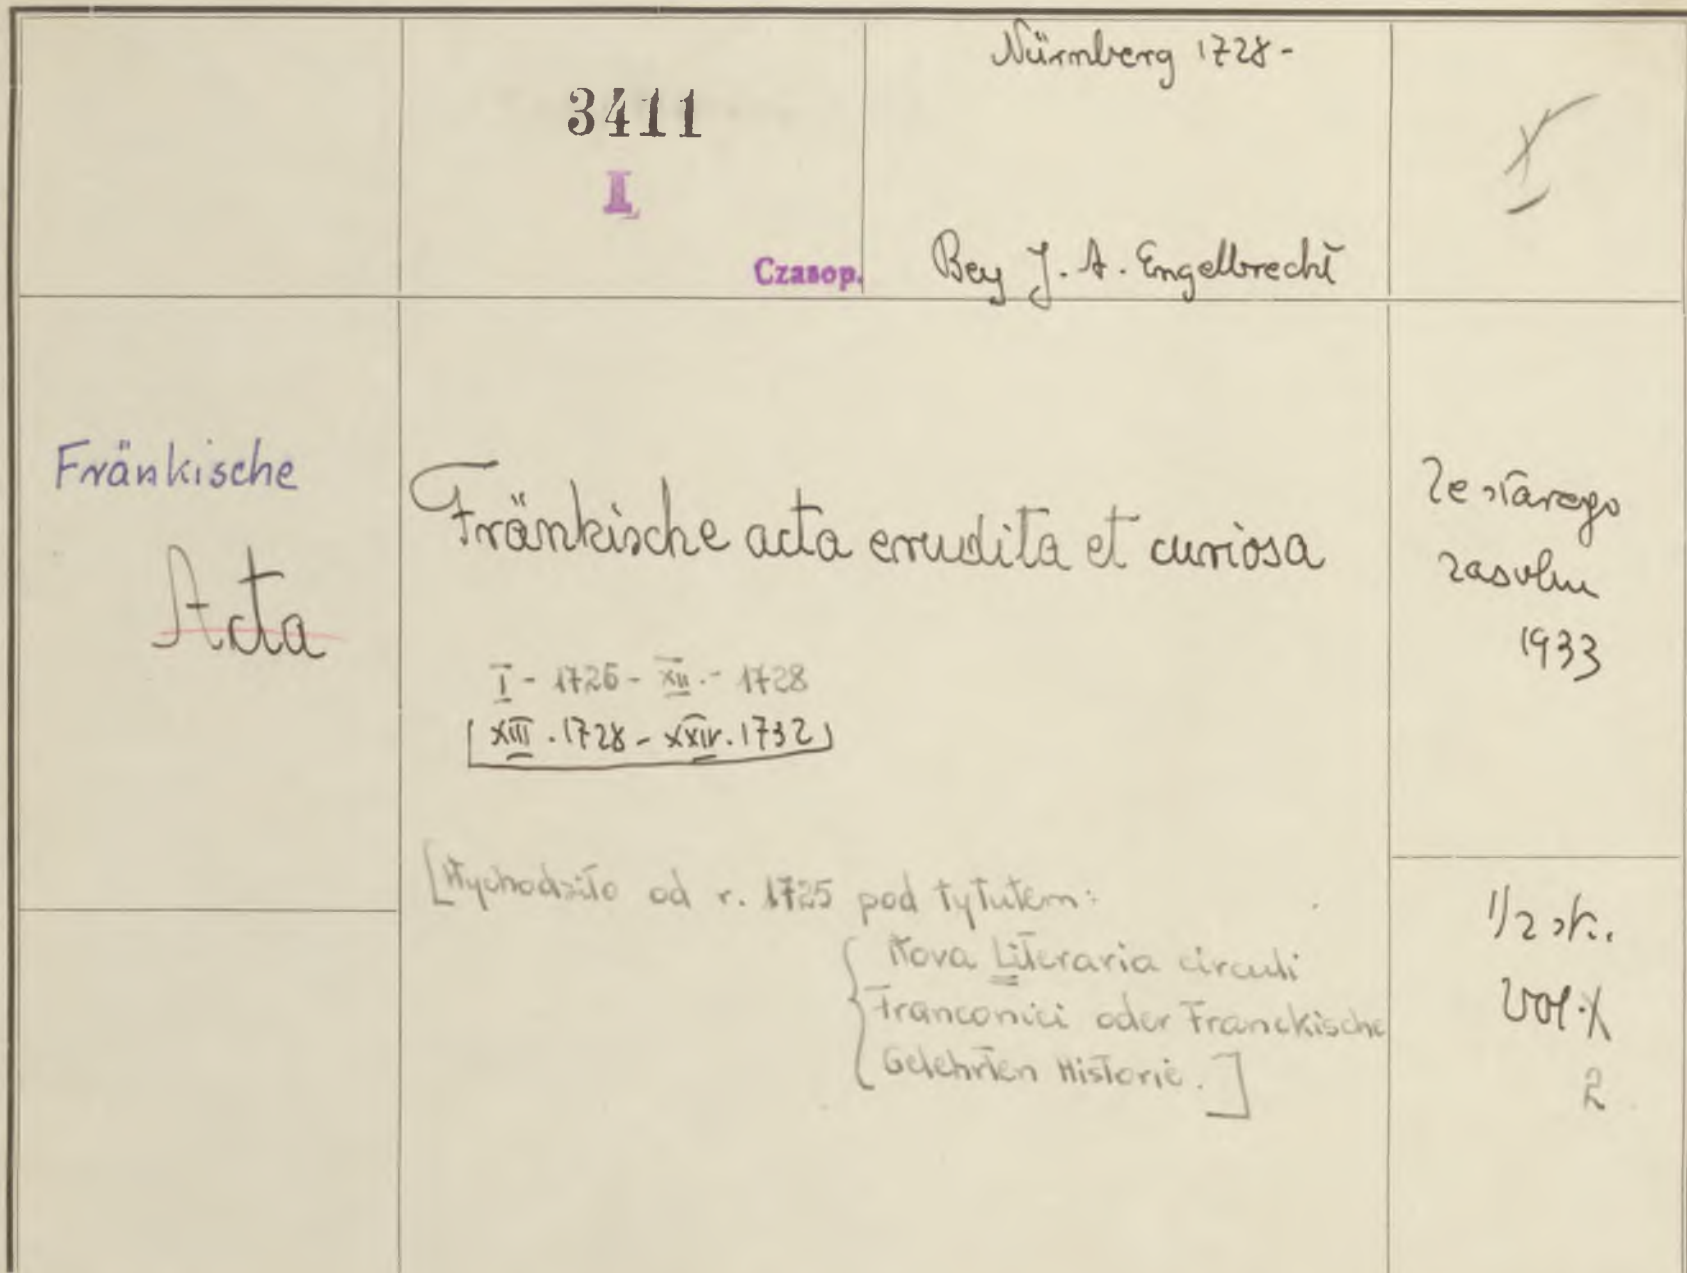 3411
I
Czasop.
Nürnberg 1728-
Bey J. A. Engelbrecht
Fränkische
Acta
Fränkische acta erudita et curiosa
I - 1726 - XII. - 1728
XIII. 1728 - XXIV. 1732
[Wychodziło od r. 1725 pod tytułem:
Nova Literaria circuli
Franconici oder Franckische
Gelehrten Historie.]
Ze starego
zasobu
1933
1/2 sk.
vol.
2